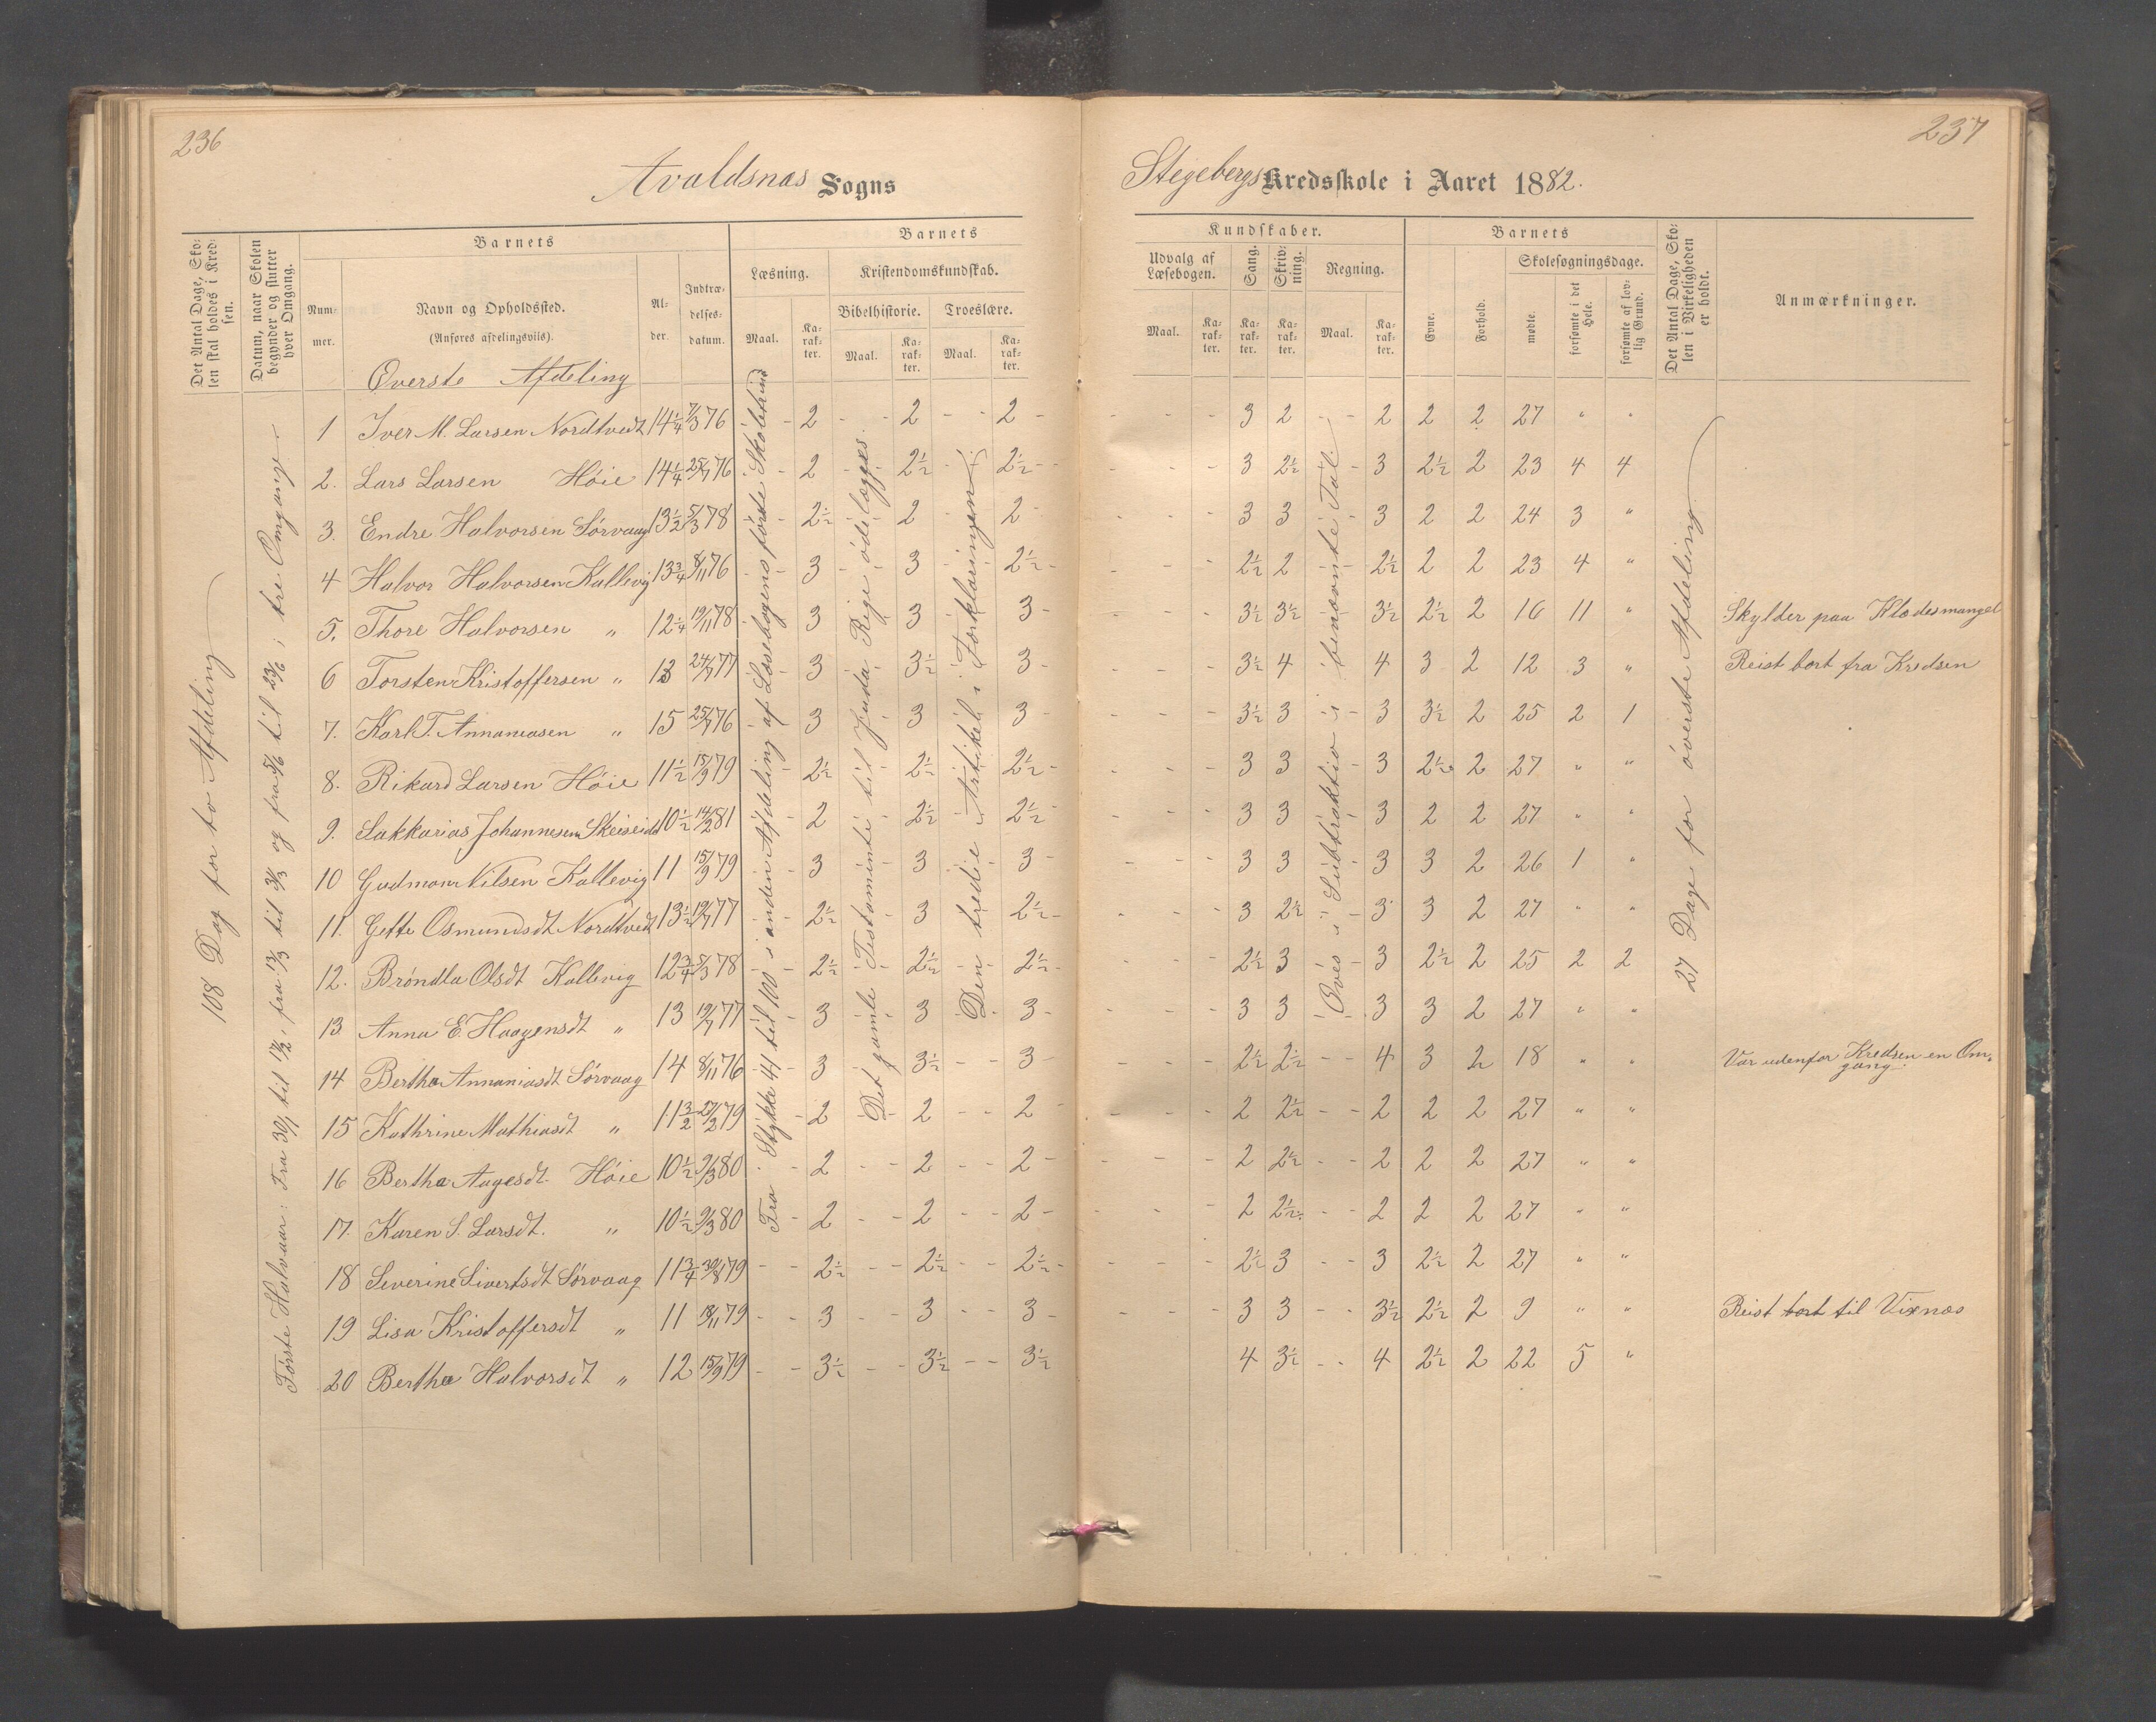 236
Avaldsnæs Sogns
Det Antal Dage, Sko-
len skal holdes i Kred-
sen.
Datum, naar Skolen
begynder og slutter
hver Omgang.
Barnets
Num-
mer.
Navn og Opholdssted.
(Anføres afdelingsviis).
Al-
der
Indtræ-
delses-
datum.
Barnets
Læsning.
Maal.
Ka-
rak-
ter.
Kristendomskundskab.
Bibelhistorie.
Maal.
Ka-
rak-
ter.
Troeslære.
Maal.
Ka-
rak-
ter.
Øverste Afdeling
108 Dag for to Afdeling
Første Halvaar: Fra 30/1 til 17/2, fra 13/3 til 31/3 og fra 5/6 til 23/6 i tre Omgange
Fra Stykke 41 til 100 i anden Afdeling af Læsebogens første Skoletrin
Det gamle Testamente til Juda Rige ødelægges.
Den tredie Artikel i Forklaringen
1 Iver M. Larsen Nordtvedt 14 1/4 7/3 76 - 2 - - 2 - - 2 -
2. Lars Larsen Høie 14 1/4 25/7 76 2 2 1/2 2 1/2
3. Endre Halvorsen Sørvaag 13 1/2 5/3 78 2 1/2 2 2
4 Halvor Halvorsen Kallevig 13 3/4 8/11 76 3 3 2 1/2
5. Thore Halvorsen " 12 1/4 19/11 78 3 3 3
6 Torsten Kristoffersen " 13 24/7 77 3 3 1/2 3
7. Karl T. Annaniasen " 15 25/7 76 3 3 3
8. Rikard Larsen Høie 11 1/2 15/9 79 2 1/2 2 1/2 2 1/2
9. Sakkarias Johannesen Skeiseid 10 1/2 14/2 81 2 2 1/2 2 1/2
10 Gudmom Nilsen Kallevig 11 15/9 79 3 3 3
11. Gette Osmundsdt Nordtvedt 13 1/2 19/7 77 2 1/2 3 2 1/2
12. Brøndla Olsdt Kallevig 12 3/4 5/3 78 2 1/2 2 1/2 2 1/2
13 Anna E. Haagensdt " 13 19/7 77 3 3 3
14 Bertha Annaniasdt Sørvaag 14 8/11 76 3 3 1/2 3
15 Kathrine Mathiasdt " 11 3/2 27/2 79 2 2 2
16 Bertha Aagesdt. Høie 10 1/2 9/3 80 2 2 2
17. Karen S. Larsdt. " 10 1/2 9/3 80 2 2 2
18 Severine Sivertsdt Sørvaag 11 3/4 30/8 79 2 1/2 2 1/2 2 1/2
19 Lisa Kristoffersdt " 11 18/11 79 3 3 3
20 Bertha Halvorsdt " 12 15/9 79 3 1/2 3 1/2 3 1/2
237
Stegebergs Kredsskole i Aaret 1882.
Kundskaber.
Udvalg af
Læsebogen.
Maal.
Ka-
rak-
ter.
Sang.
Ka-
rak-
ter.
Skriv-
ning.
Ka-
rak-
ter.
Regning.
Maal.
Ka-
rak-
ter.
Barnets
Evne.
Forhold.
Skolesøgningsdage.
mødte.
forsømte i det
Hele.
forsømte af lov-
lig Grund.
Det Antal Dage, Sko-
len i Virkeligheden
er holdt.
Anmærkninger.
Øves i Subtraktion i benævnte Tal
27 Dage for øverste Afdeling
3 2 2 2 2 27 " "
3 2 1/2 3 2 1/2 2 23 4 4
3 3 3 2 2 24 3 "
2 1/2 2 2 1/2 2 2 23 4 "
3 1/2 3 1/2 3 1/2 2 1/2 2 16 11 " Skylder paa Klædesmangel
3 1/2 4 4 3 2 12 3 " Reist bort fra Kredsen
3 1/2 3 3 3 1/2 2 25 2 1
3 3 3 2 1/2 2 27 " "
3 3 3 2 2 27 " "
3 3 3 3 2 26 1 "
3 2 1/2 3 3 2 27 " "
2 1/2 3 3 2 1/2 2 25 2 2
3 3 3 3 2 27 " "
2 1/2 2 1/2 4 3 2 18 " " Var udenfor Kredsen en Om-
gang.
2 2 1/2 2 2 2 27 " "
2 2 1/2 2 2 2 27 " "
2 2 1/2 2 2 2 27 " "
2 1/2 3 3 2 1/2 2 27 " "
3 3 3 1/2 2 1/2 2 9 " " Reist bort til Vixnæs
4 3 1/2 4 2 1/2 2 22 5 "